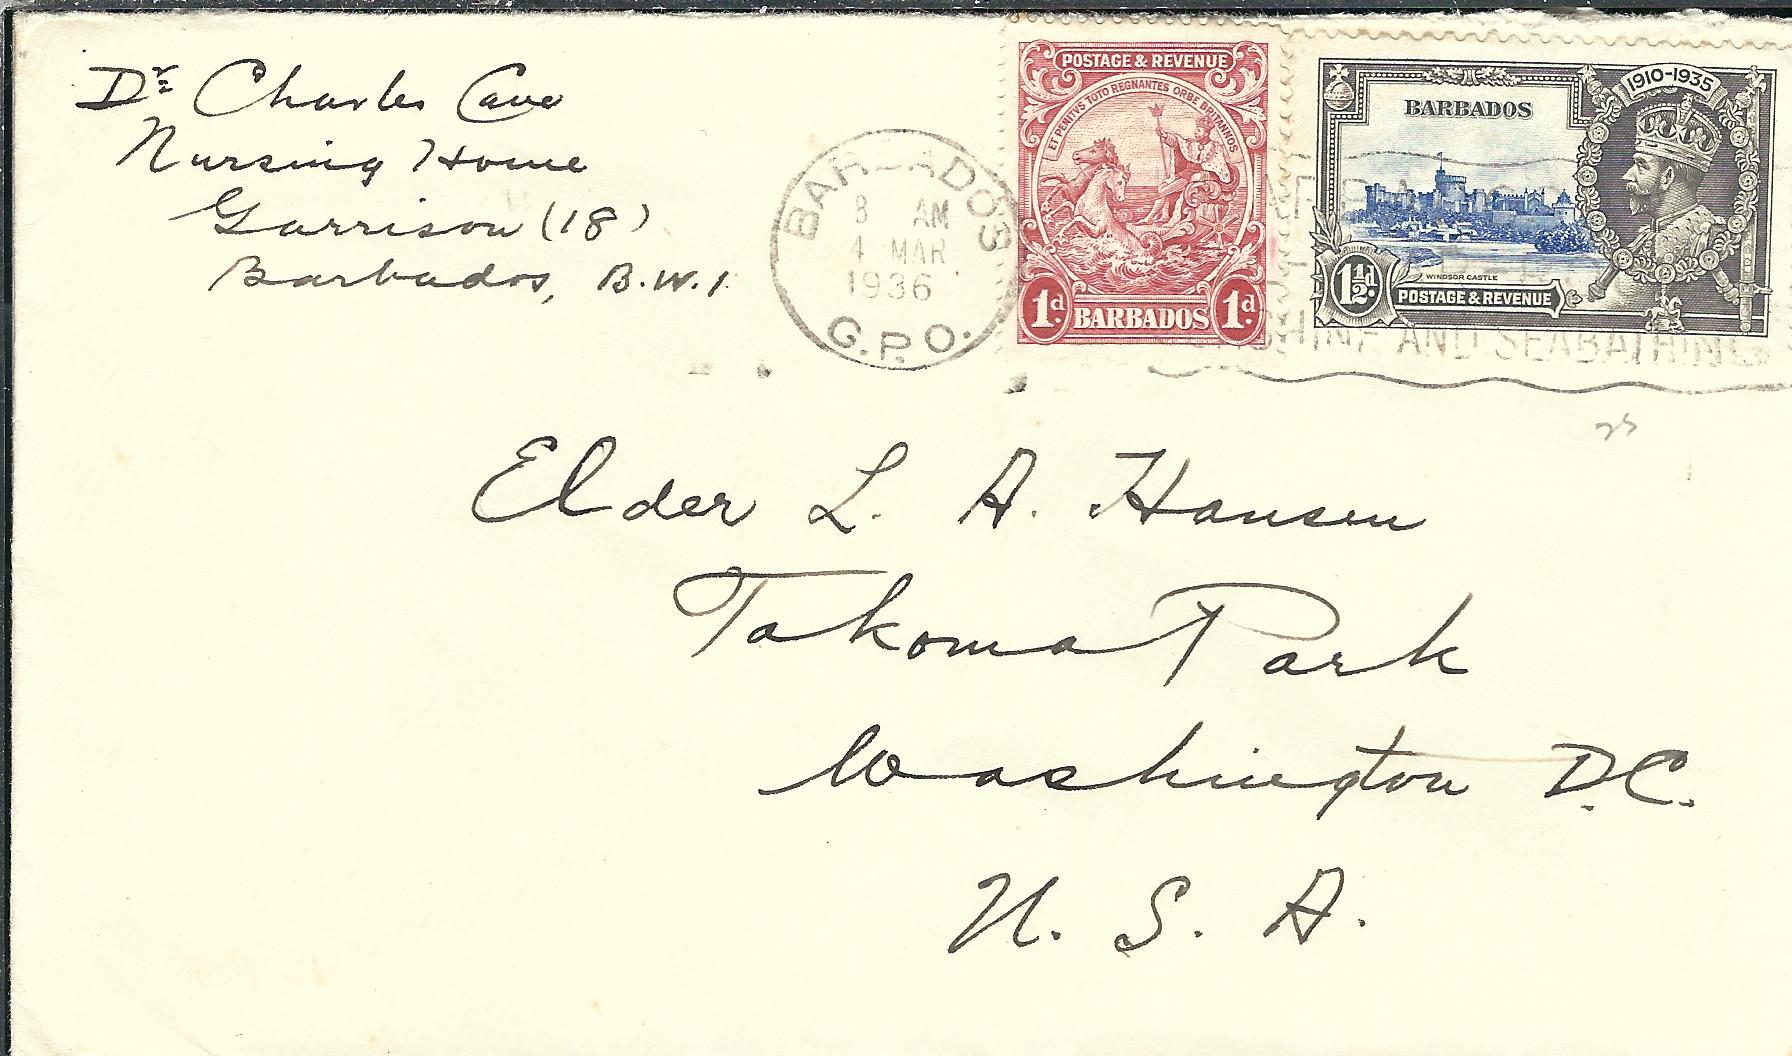 Dr Charles Cave
Nursing Home
Garrison (18)
Barbados, B.W.I.
BARBADOS
8 AM
4 MAR
1936
G.P.O.
POSTAGE & REVENUE
ET PENITUS TOTO REGNANTES ORBE BRITANNOS
1d 1d
BARBADOS
1910-1935
BARBADOS
WINDSOR CASTLE
1½d.
POSTAGE & REVENUE
AND SEABATHING
Elder L. A. Hansen
Takoma Park
Washington D.C.
U. S. A.